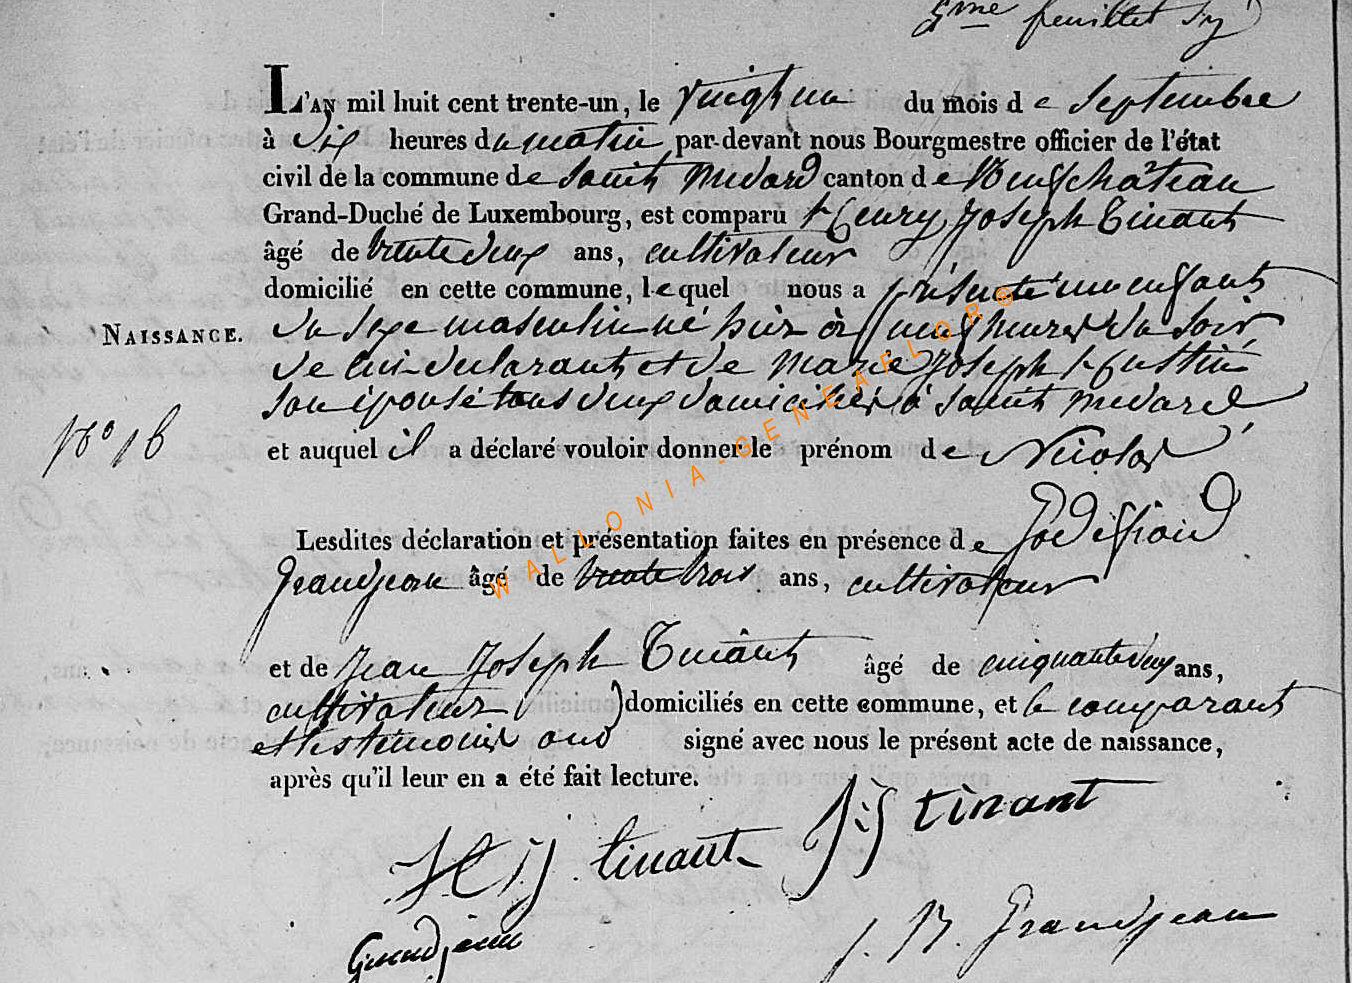 5me feuillet
L'AN mil huit cent trente-un, le vingt un du mois de Septembre
à dix heures du matin par-devant nous Bourgmestre officier de l'état
civil de la commune de Saint Medard canton de Neufchâteau
Grand-Duché de Luxembourg, est comparu Henry Joseph Tinant
âgé de trente deux ans, cultivateur
domicilié en cette commune, lequel nous a présenté un enfant
NAISSANCE. du sexe masculin né hier à neuf heures du soir
de lui déclarant et de Marie Joseph Hustin
son épouse tous deux domiciliés à Saint Medard
N° 16
et auquel il a déclaré vouloir donner le prénom de Nicolas
Lesdites déclaration et présentation faites en présence de Godefroid
Grandjean âgé de trente trois ans, cultivateur
et de Jean Joseph Tinant âgé de cinquante deux ans,
cultivateur domiciliés en cette commune, et le comparant
et les témoins ont signé avec nous le présent acte de naissance,
après qu'il leur en a été fait lecture.
H J tinant J J tinant
Grandjean J. N. Grandjean
WALLONIA-GENEAFLOR®